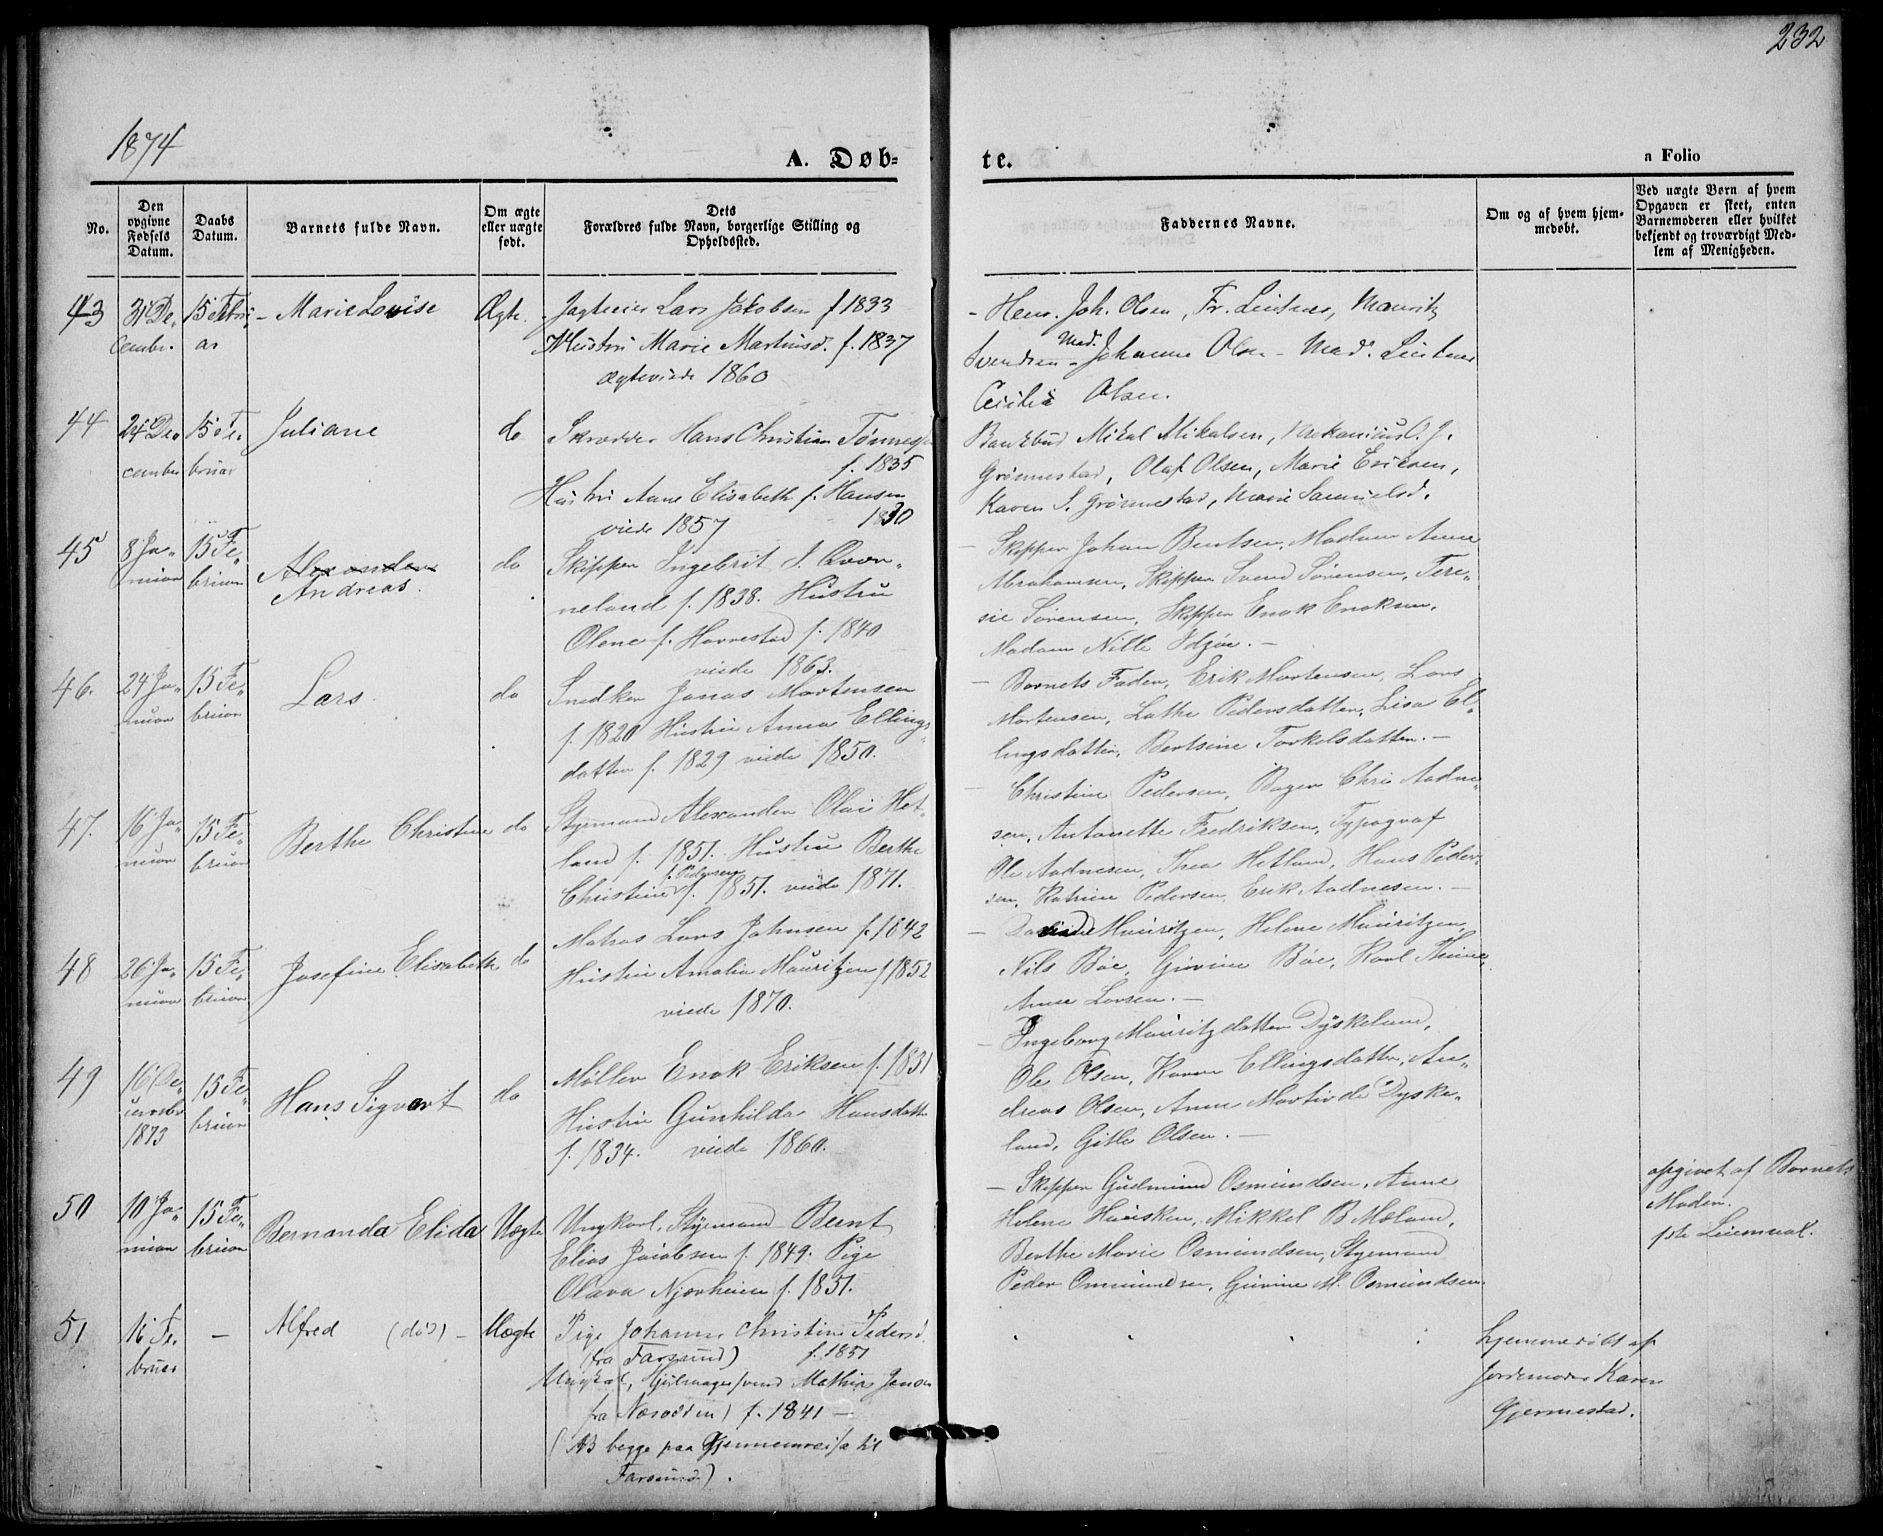 232
1874
A. Døb-
te.
a Folio
No.
Den opgivne Fødsels Datum.
Daabs Datum.
Barnets fulde Navn.
Om ægte eller uægte født.
Dets Forældres fulde Navn, borgerlige Stilling og Opholdssted.
Faddernes Navne.
Om og af hvem hjemmedøbt.
Ved uægte Børn af hvem Opgaven er skeet, enten Barnemoderen eller hvilket bekjendt og troværdigt Medlem af Menigheden.
43
31 De-
cember.
15 Febru-
ar
Marie Lovise
Ægte.
Jagteier Lars Jakobsen f 1833
Hustru Marie Martinsd. f. 1837
ægteviede 1860
Henr. Joh. Olsen, Fr. Lintner, Mauritz
Svendsen - Mad. Johanne Olsen - Mad. Lintner
Cecilie Olsen.
44
24 De-
cember
15 Fe-
bruar
Juliane
do
Skrædder Hans Christian Tønnesen
f. 1835
Hustru Anne Elisabeth f. Hansen
viede 1857 1830
Bankbud Mikal Mikalsen, Mekanikus O. J.
Grønnestad, Olaf Olsen, Marie Eriksen,
Karen S. Grønnestad, Marie Samuelsd.
45
8 Ja-
nuar
15 Fe-
bruar
Alexander
Andreas.
do
Skipper Ingebrit J. Qvær-
neland f. 1838. Hustru
Olene f. Harrestad f. 1840
viede 1863.
Skipper Johan Bentsen, Madam Anne
Abrahamsen, Skipper Svend Sørensen, Tere-
sie Sørensen, Skipper Enok Enoksen,
Madam Nille
46.
24 Ja-
nuar
15 Fe-
bruar
Lars.
do
Snedker Jonas Mortensen
f. 1820 Hustru Anna Ellings-
datter f. 1829 viede 1850.
Barnets Fader, Erik Mortensen, Lars
Mortensen, Lathe Pedersdatter, Lisa El-
lingsdatter, Bertsine Torkelsdatter.
47.
16 Ja-
nuar
15 Fe-
bruar
Berthe Christine
do
Styrmand Alexander Olai Het-
land f. 1851. Hustru Berthe
Christine f. Pedersen f. 1851. viede 1871.
Christine Pedersen, Bager Chri Aadne-
sen, Antonette Fredriksen, Typograf
Ole Aadnesen, Thea Hetland, Hans Peder-
sen, Katrine Pedersen, Erik Aadnesen.
48
26 Ja-
nuar
15 Fe-
bruar
Josefine Elisabeth
do
Matros Lars Johnsen f. 1842
Hustru Amalia Mauritzen f 1852
viede 1870.
Mauritzen, Helene Mauritzen,
Nils Bøe, Gurine Bøe, Karl Thime,
Anne Larsen.
49
16 De-
cember
1873
15 Fe-
bruar
Hans Sigvart
do
Møller Enok Eriksen f. 1831
Hustru Gunhilda Hansdatter
f. 1834. viede 1860.
Ingeborg Mauritzdatter Dyskeland,
Ole Olsen, Karen Ellingsdatter, An-
dreas Olsen, Anne Martinde Dyske-
land, Gitle Olsen.
50
10 Ja-
nuar
15 Fe-
bruar
Bernanda Elida
Uægte
Ungkarl, Styrmand Bernt
Elias Jacobsen f. 1849. Pige
Olava Njærheim f. 1851.
Skipper Gudmund Osmundsen, Anne
Helene Huusken, Mikkel B. Meland,
Berthe Marie Osmundsen, Styrmand
Peder Osmundsen, Gurine M. Osmundsen.
opgivet af Barnets
Moder.
1ste Leiermaal.
51
16 Fe-
bruar
-
Alfred (død) -
Uægte
Pige Johanne Christine Pedersd.
(fra Farsund) f. 1851
Ungkarl, Hjulmagersvend Mathias Jensen
fra Næsodden) f. 1841
(NB begge paa Gjennemreise til
Farsund).
hjemmedøbt af
Jordemoder Karen
Gjermestad.